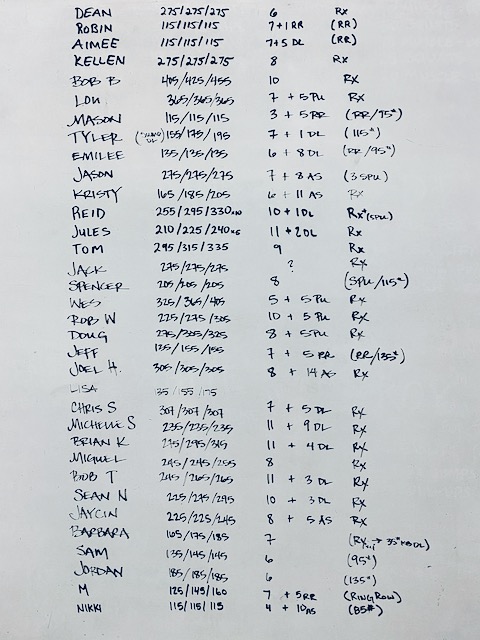 DEAN 275/275/275 6 Rx
ROBIN 115/115/115 7+1RR (RR)
AIMEE 115/115/115 7+5 DL (RR)
KELLEN 275/275/275 8 Rx
BOB B 405/425/455 10 Rx
LOU 365/365/365 7 + 5PU Rx
MASON 115/115/115 3 + 5RR (RR/95#)
TYLER 155/175/195 7 + 1DL (115#)
EMILEE 135/135/135 6 + 8DL (RR/95#)
JASON 275/275/275 7 + 8AS (3SPU)
KRISTY 165/185/205 6 + 11 AS Rx
REID 255/295/330x10 10 + 1DL Rx*(SPU)
JULES 210/225/240x6 11 + 2DL Rx
TOM 295/315/335 9 Rx
JACK 275/275/275 ? Rx
SPENCER 205/205/205 8 (SPU/115#)
WES 325/365/405 5 + 5PU Rx
ROB W 225/275/305 10 + 5PU Rx
DOUG 275/305/325 8 + 5PU Rx
JEFF 135/155/155 7 + 5RR (RR/135#)
JOEL H. 305/305/305 8 + 14 AS Rx
LISA 135/155/175
CHRIS S 307/307/307 7 + 5 DL Rx
MICHELLE S 235/235/235 11 + 9 DL Rx
BRIAN K 275/295/315 11 + 4 DL Rx
MIGUEL 245/245/255 8 Rx
BOB T 245/265/265 11 + 3 DL Rx
SEAN N 225/275/295 10 + 3DL Rx
JAYCIN 225/225/245 8 + 5 AS Rx
BARBARA 165/175/185 7 (Rx → 35# KBDL)
SAM 135/145/145 6 (95#)
JORDAN 185/185/185 6 (135#)
M 125/145/160 7 + 5RR (RINGROW)
NIKKI 115/115/115 4 + 10AS (85#)